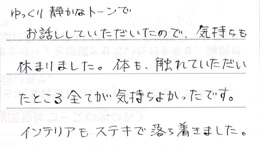 ゆっくり 静かなトーンで
お話ししていただいたので、気持ちも
休まりました。体も、触れていただい
たところ全てが気持ちよかったです。
インテリアもステキで落ち着きました。